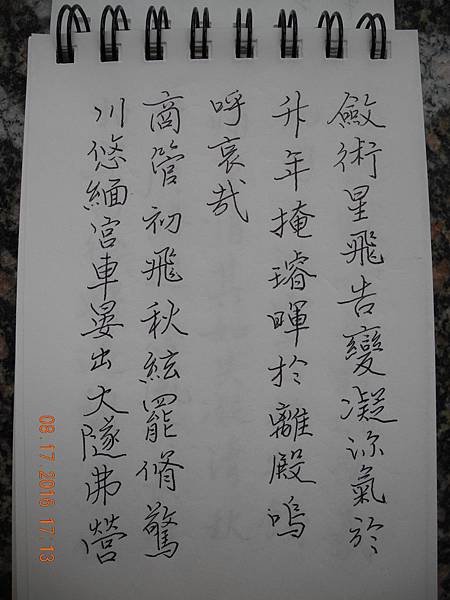 斂術星飛告變凝涼氣於
升年掩璿暉於離殿嗚
呼哀哉
商管初飛秋絃罷脩驚
川悠緬宮車晏出大隧弗營
08.17.2016 17:13